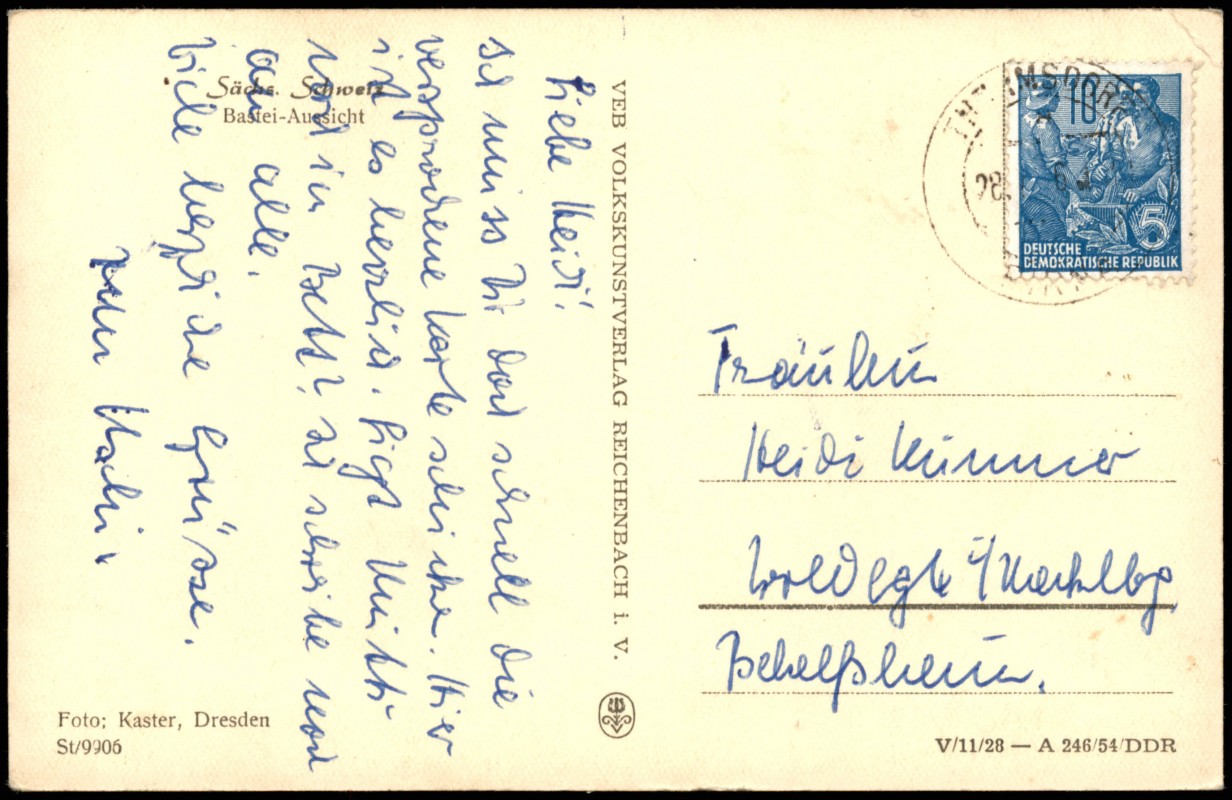 Sächs. Schweiz
Bastei-Aussicht
Liebe Heidi!
Ich muss Dir doch schnell die
versprochene Karte schicken. Hier
ist es herrlich. Liegt Mutti
noch im Bett? Ich schreibe noch
an alle.
Viele herzliche Grüsse.
Foto: Kaster, Dresden
St/9906
VEB VOLKSKUNSTVERLAG REICHENBACH i. V.
10
5
DEUTSCHE
DEMOKRATISCHE REPUBLIK
Fräulein
Heidi
Woldegk i/Mecklbg
Behelfsheim.
V/11/28 — A 246/54/DDR